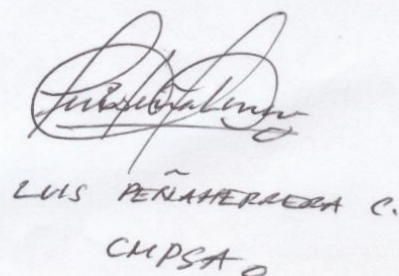 LUIS PEÑAHERRERA C.
CMPSA